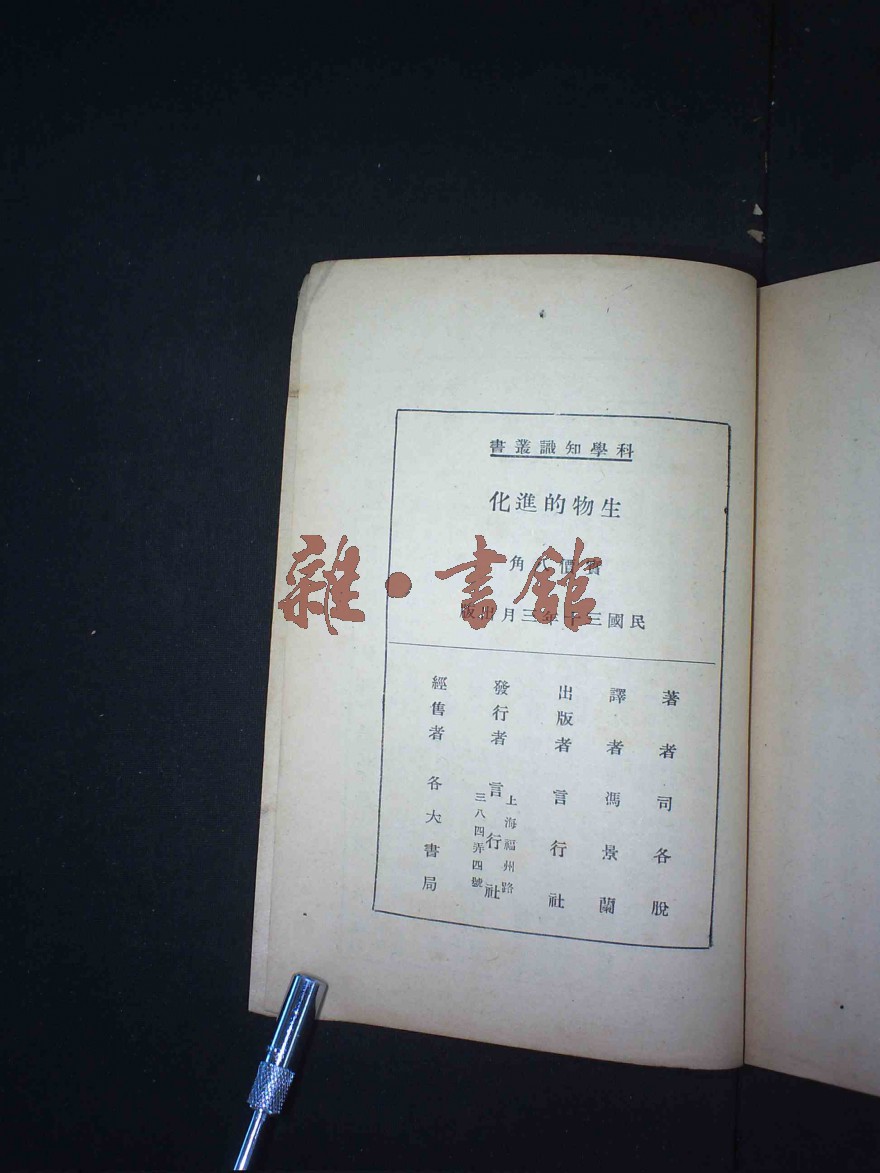 科學知識叢書
生物的進化
實價 角
民國三十年三月出版
著者 司各脫
譯者 馮景蘭
出版者 言行社
發行者 言行社
上海福州路
三八四弄四號
經售者 各大書局
雜·書館